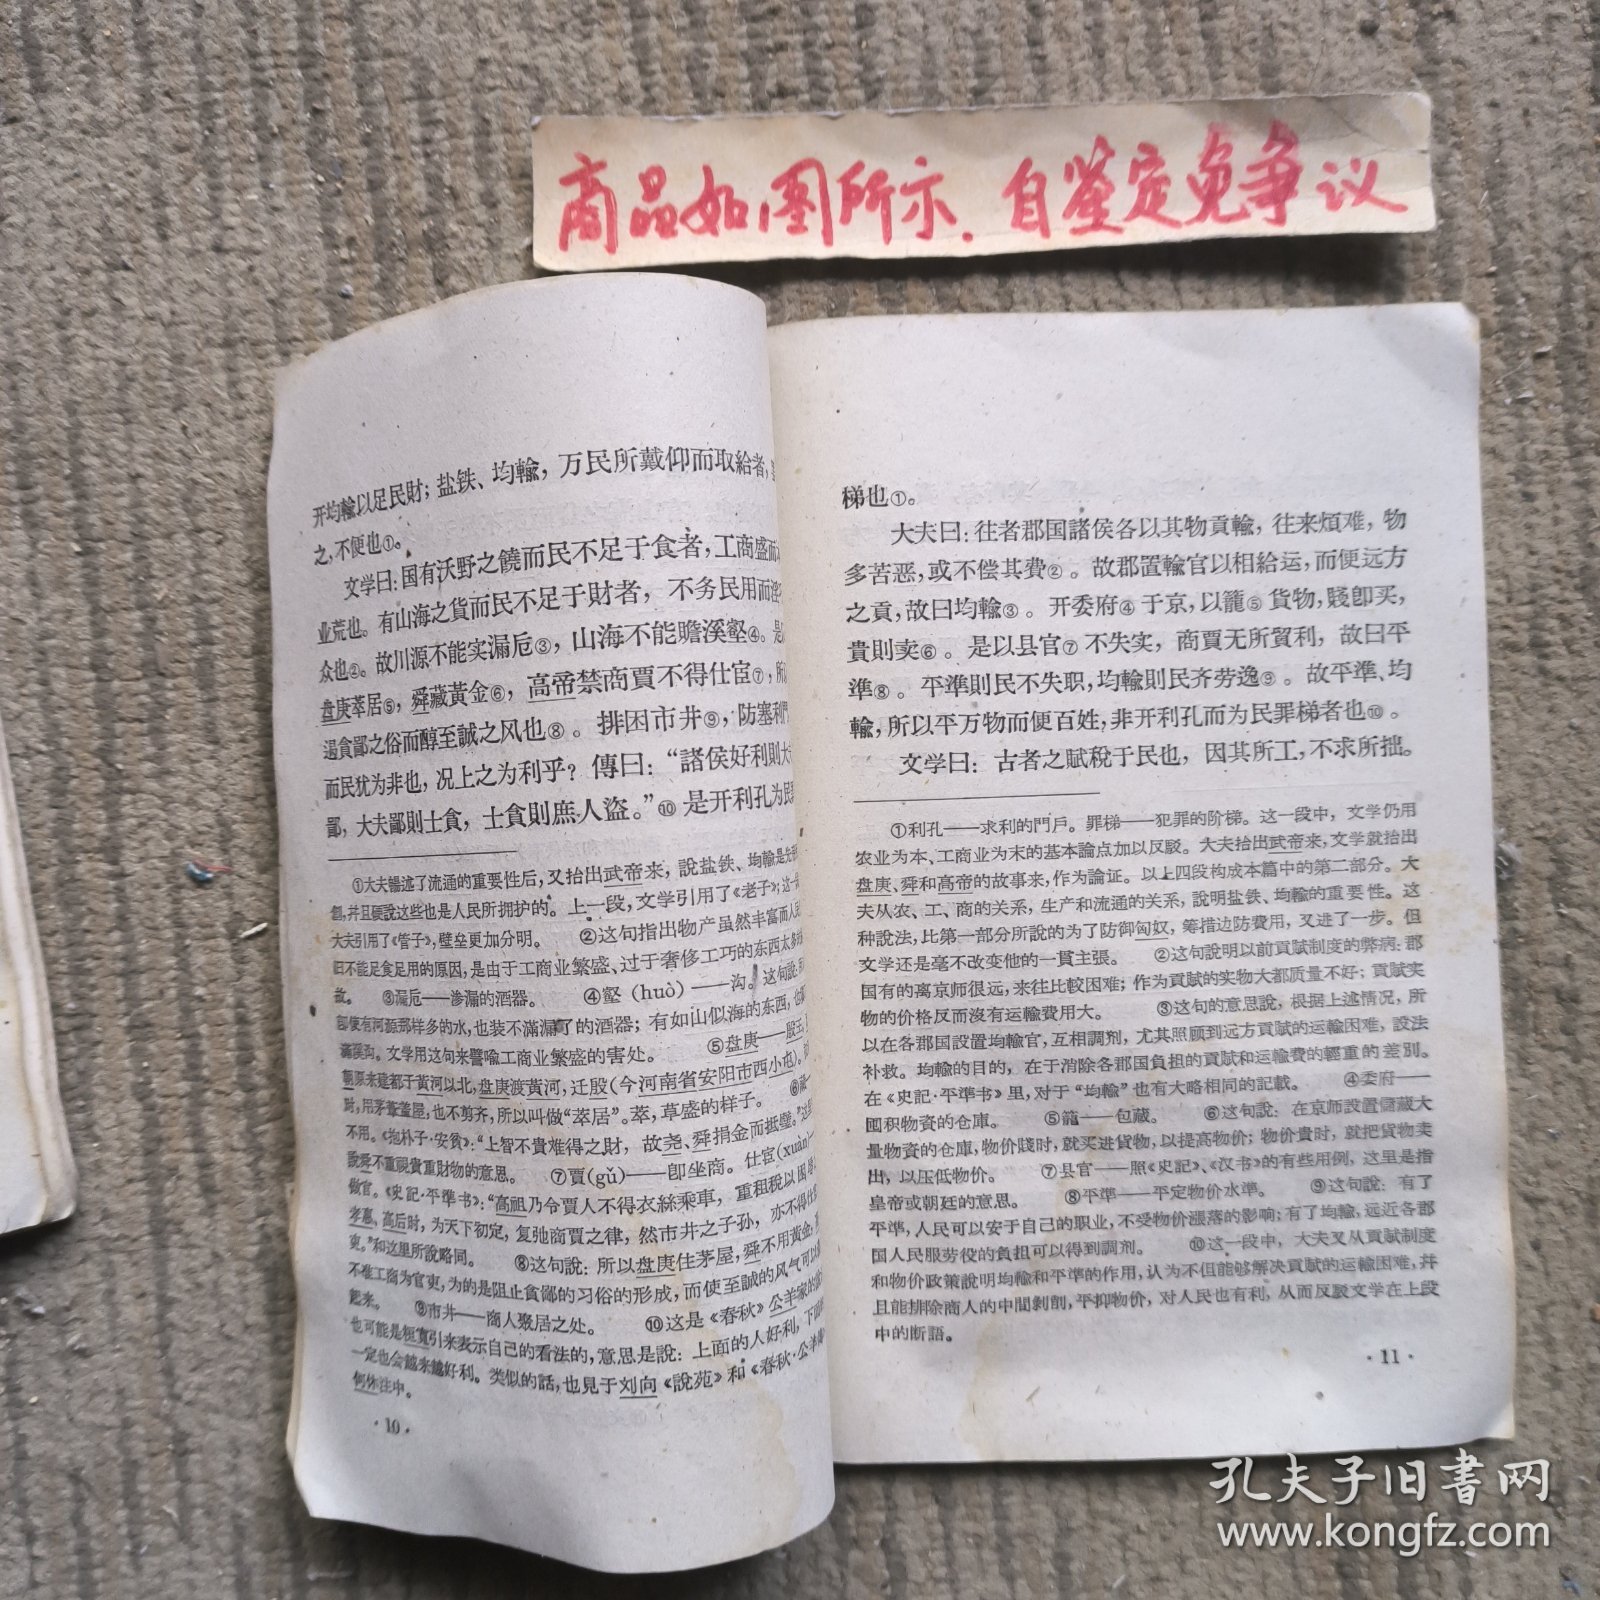 商品如图所示.自鉴定免争议
开均輸以足民財；盐铁、均輸，万民所戴仰而取給者，
之，不便也①。
文学曰：国有沃野之饒而民不足于食者，工商盛而
业荒也。有山海之貨而民不足于財者，不务民用而淫
众也②。故川源不能实漏卮③，山海不能贍溪壑④。是
盘庚萃居⑤，舜藏黃金⑥，高帝禁商賈不得仕宦⑦，所
遏貪鄙之俗而醇至誠之风也⑧。排困市井⑨，防塞利門
而民犹为非也，况上之为利乎？傳曰：“諸侯好利則大
鄙，大夫鄙則士貪，士貪則庶人盜。”⑩是开利孔为民
①大夫暢述了流通的重要性后，又抬出武帝来，說盐铁、均輸是先帝
創，并且硬說这些也是人民所拥护的。上一段，文学引用了《老子》；这一
大夫引用了《管子》，壁垒更加分明。 ②这句指出物产虽然丰富而人民
旧不能足食足用的原因，是由于工商业繁盛、过于奢侈工巧的东西太多
故。 ③漏卮——渗漏的酒器。 ④壑（huò）——沟。这句說，
即使有河源那样多的水，也装不滿漏了的酒器；有如山似海的东西，也
滿溪沟。文学用这句来譬喻工商业繁盛的害处。 ⑤盘庚——殷王，
朝原来建都于黃河以北，盘庚渡黃河，迁殷（今河南省安阳市西小屯）。
时，用茅葺盖屋，也不剪齐，所以叫做“萃居”。萃，草盛的样子。 ⑥藏—
不用。《抱朴子·安貧》：“上智不貴难得之財，故尧、舜捐金而抵璧。”这
說舜不重視貴重財物的意思。 ⑦賈(gǔ)——卽坐商。仕宦(xuàn)—
做官。《史記·平準书》：“高祖乃令賈人不得衣絲乘車，重租税以困
孝惠、高后时，为天下初定，复弛商賈之律，然市井之子孙，亦不得仕
吏。”和这里所說略同。 ⑧这句說：所以盘庚住茅屋，舜不用黃金，
不准工商为官吏，为的是阻止貪鄙的习俗的形成，而使至誠的风气可以
起来。 ⑨市井——商人聚居之处。 ⑩这是《春秋》公羊家的
也可能是桓寬引来表示自己的看法的，意思是說：上面的人好利，下面
一定也会越来越好利。类似的話，也見于刘向《說苑》和《春秋·公羊
何休注中。
·10·
梯也①。
大夫曰：往者郡国諸侯各以其物貢輸，往来煩难，物
多苦恶，或不偿其費②。故郡置輸官以相給运，而便远方
之貢，故曰均輸③。开委府④于京，以籠⑤貨物，賤卽买，
貴則卖⑥。是以县官⑦不失实，商賈无所貿利，故曰平
準⑧。平準則民不失职，均輸則民齐劳逸⑨。故平準、均
輸，所以平万物而便百姓，非开利孔而为民罪梯者也⑩。
文学曰：古者之賦税于民也，因其所工，不求所拙。
①利孔——求利的門戶。罪梯——犯罪的阶梯。这一段中，文学仍用
农业为本、工商业为末的基本論点加以反駁。大夫抬出武帝来，文学就抬出
盘庚、舜和高帝的故事来，作为論证。以上四段构成本篇中的第二部分。大
夫从农、工、商的关系，生产和流通的关系，說明盐铁、均輸的重要性。这
种說法，比第一部分所說的为了防御匈奴，筹措边防費用，又进了一步。但
文学还是毫不改变他的一貫主張。 ②这句說明以前貢賦制度的弊病：郡
国有的离京师很远，来往比較困难；作为貢賦的实物大都质量不好；貢賦实
物的价格反而沒有运輸費用大。 ③这句的意思說，根据上述情况，所
以在各郡国設置均輸官，互相調剂，尤其照顾到远方貢賦的运輸困难，設法
补救。均輸的目的，在于消除各郡国負担的貢賦和运輸費的輕重的差別。
在《史記·平準书》里，对于“均輸”也有大略相同的記載。 ④委府——
囤积物資的仓庫。 ⑤籠——包藏。 ⑥这句說：在京师設置儲藏大
量物資的仓庫，物价賤时，就买进貨物，以提高物价；物价貴时，就把貨物卖
出，以压低物价。 ⑦县官——照《史記》、《汉书》的有些用例，这里是指
皇帝或朝廷的意思。 ⑧平準——平定物价水準。 ⑨这句說：有了
平準，人民可以安于自己的职业，不受物价漲落的影响；有了均輸，远近各郡
国人民服劳役的負担可以得到調剂。 ⑩这一段中，大夫又从貢賦制度
和物价政策說明均輸和平準的作用，认为不但能够解决貢賦的运輸困难，并
且能排除商人的中間剝削，平抑物价，对人民也有利，从而反駁文学在上段
中的断語。
·11·
孔夫子旧書网
www.kongfz.com